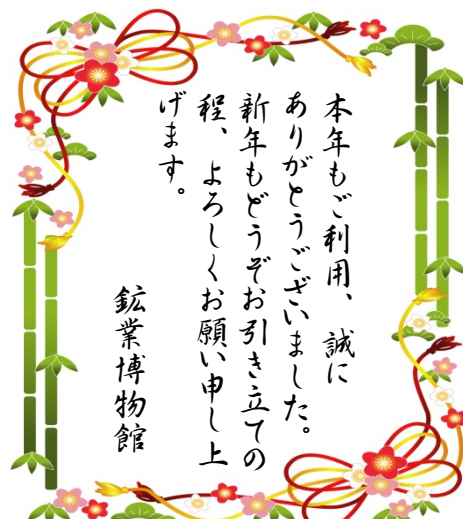 本年もご利用、誠に
ありがとうございました。
新年もどうぞお引き立ての
程、よろしくお願い申し上
げます。
鉱業博物館